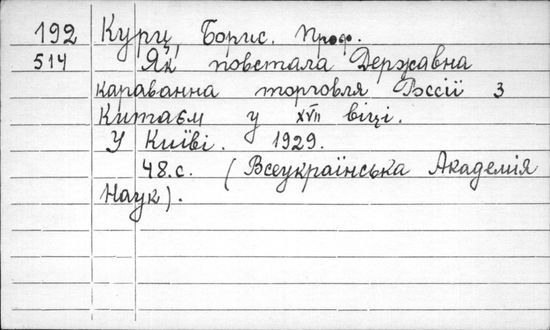 192 Курц, Борис. Проф.
514 Як повстала Державна
караванна торговля Россії з
Китаєм у XVII віці.
У Київі. 1929.
48.с. (Всеукраїнська Академія
Наук).